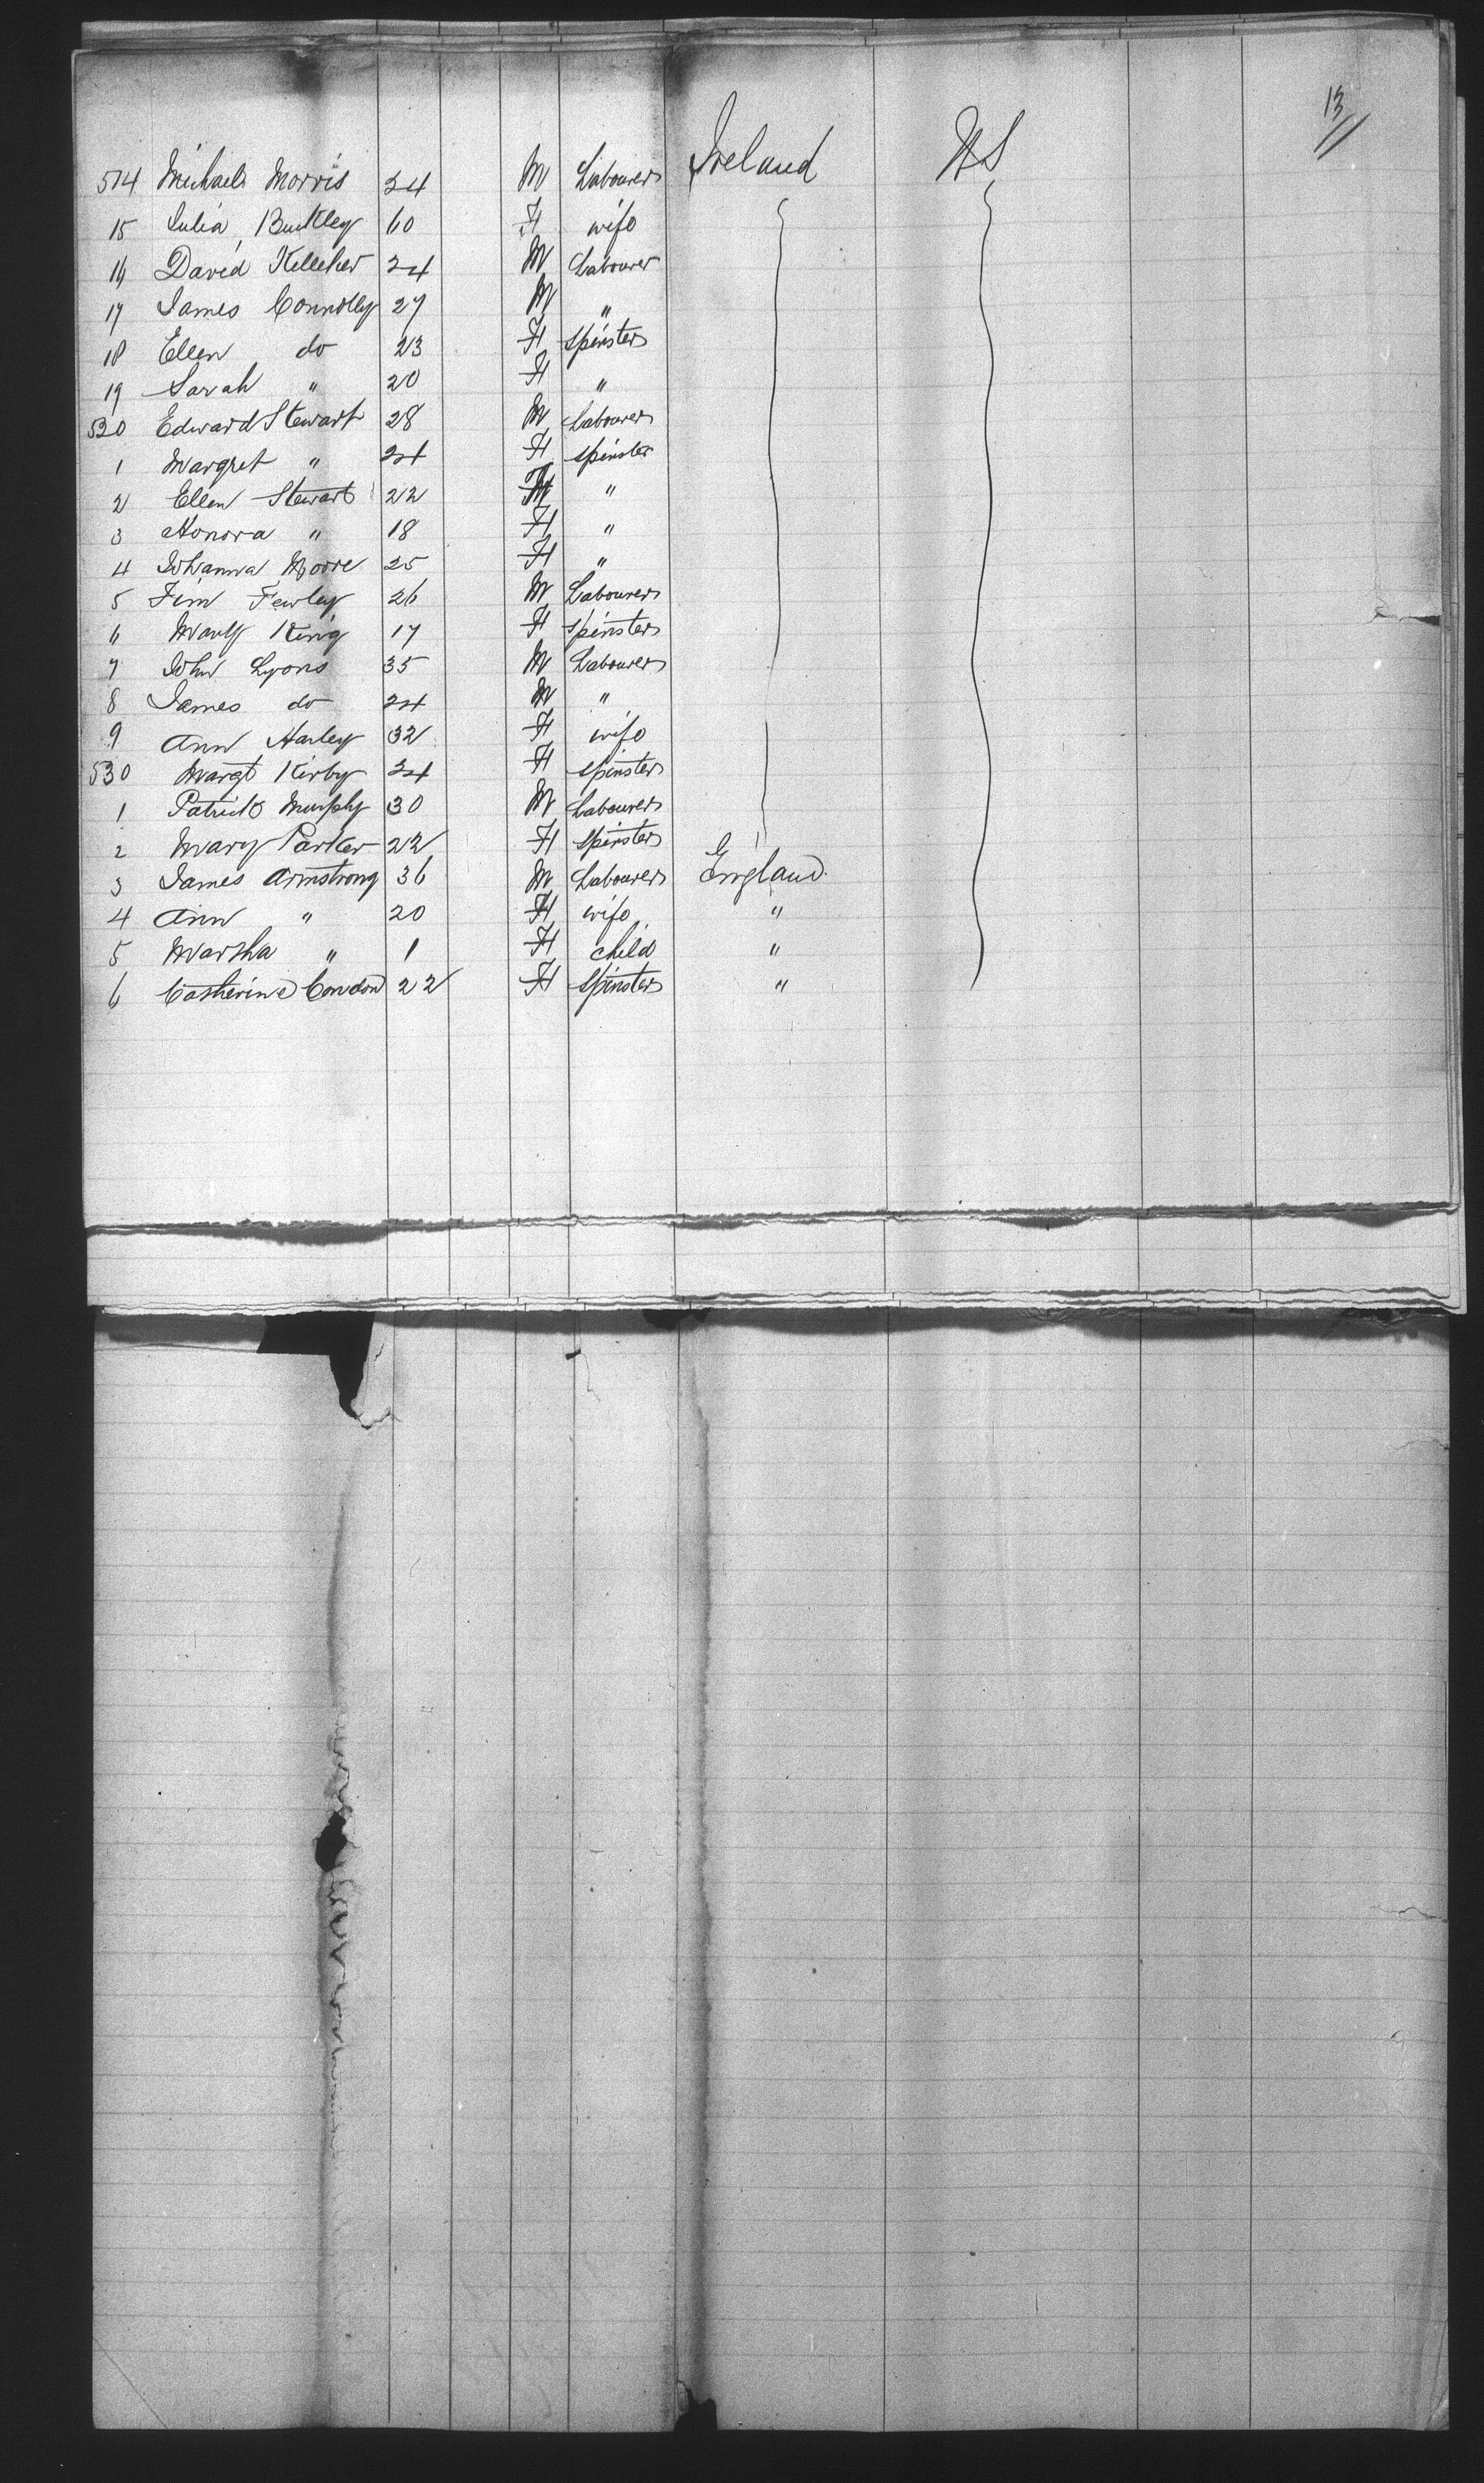 13
514 Michael Morris 24 M Labourer Ireland US
15 Julia Buckley 60 F wife
16 David Kelleher 24 M Labourer
17 James Connolly 27 M "
18 Ellen do 23 F Spinster
19 Sarah " 20 F "
520 Edward Stewart 28 M Labourer
1 Margret " 24 F Spinster
2 Ellen Stewart 22 F "
3 Honora " 18 F "
4 Johanna Moore 25 F "
5 Tim 26 M Labourer
6 Mary King 17 F Spinster
7 John Lyons 35 M Labourer
8 James do 24 M "
9 Ann Harley 32 F wife
530 Margt Kirby 24 F Spinster
1 Patrick Murphy 30 M Labourer
2 Mary Parker 22 F Spinster
3 James Armstrong 36 M Labourer England
4 Ann " 20 F wife "
5 Marsha " 1 F child "
6 Catherine Condon 22 F Spinster "